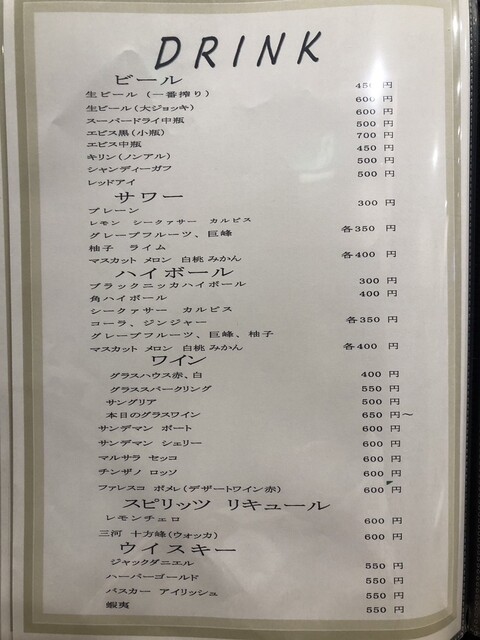 DRINK
ビール
生ビール (一番搾り) 450 円
生ビール(大ジョッキ) 600 円
スーパードライ中瓶 600 円
エビス黒(小瓶) 500 円
エビス中瓶 700 円
キリン(ノンアル) 450 円
シャンディーガフ 500 円
レッドアイ 500 円
サワー
プレーン 300 円
レモン シークァサー カルピス
グレープフルーツ、巨峰 各350 円
柚子 ライム
マスカット メロン 白桃 みかん 各400 円
ハイボール
ブラックニッカハイボール 300 円
角ハイボール 400 円
シークァサー カルピス
コーラ、ジンジャー 各350 円
グレープフルーツ、巨峰、柚子
マスカット メロン 白桃 みかん 各400 円
ワイン
グラスハウス赤、白 400 円
グラススパークリング 550 円
サングリア 500 円
本日のグラスワイン 650 円~
サンデマン ポート 600 円
サンデマン シェリー 600 円
マルサラ セッコ 600 円
チンザノ ロッソ 600 円
ファレスコ ポメレ(デザートワイン赤) 600 円
スピリッツ リキュール
レモンチェロ 600 円
三河 十方峰(ウォッカ) 600 円
ウイスキー
ジャックダニエル 550 円
ハーパーゴールド 550 円
バスカー アイリッシュ 550 円
蝦夷 550 円